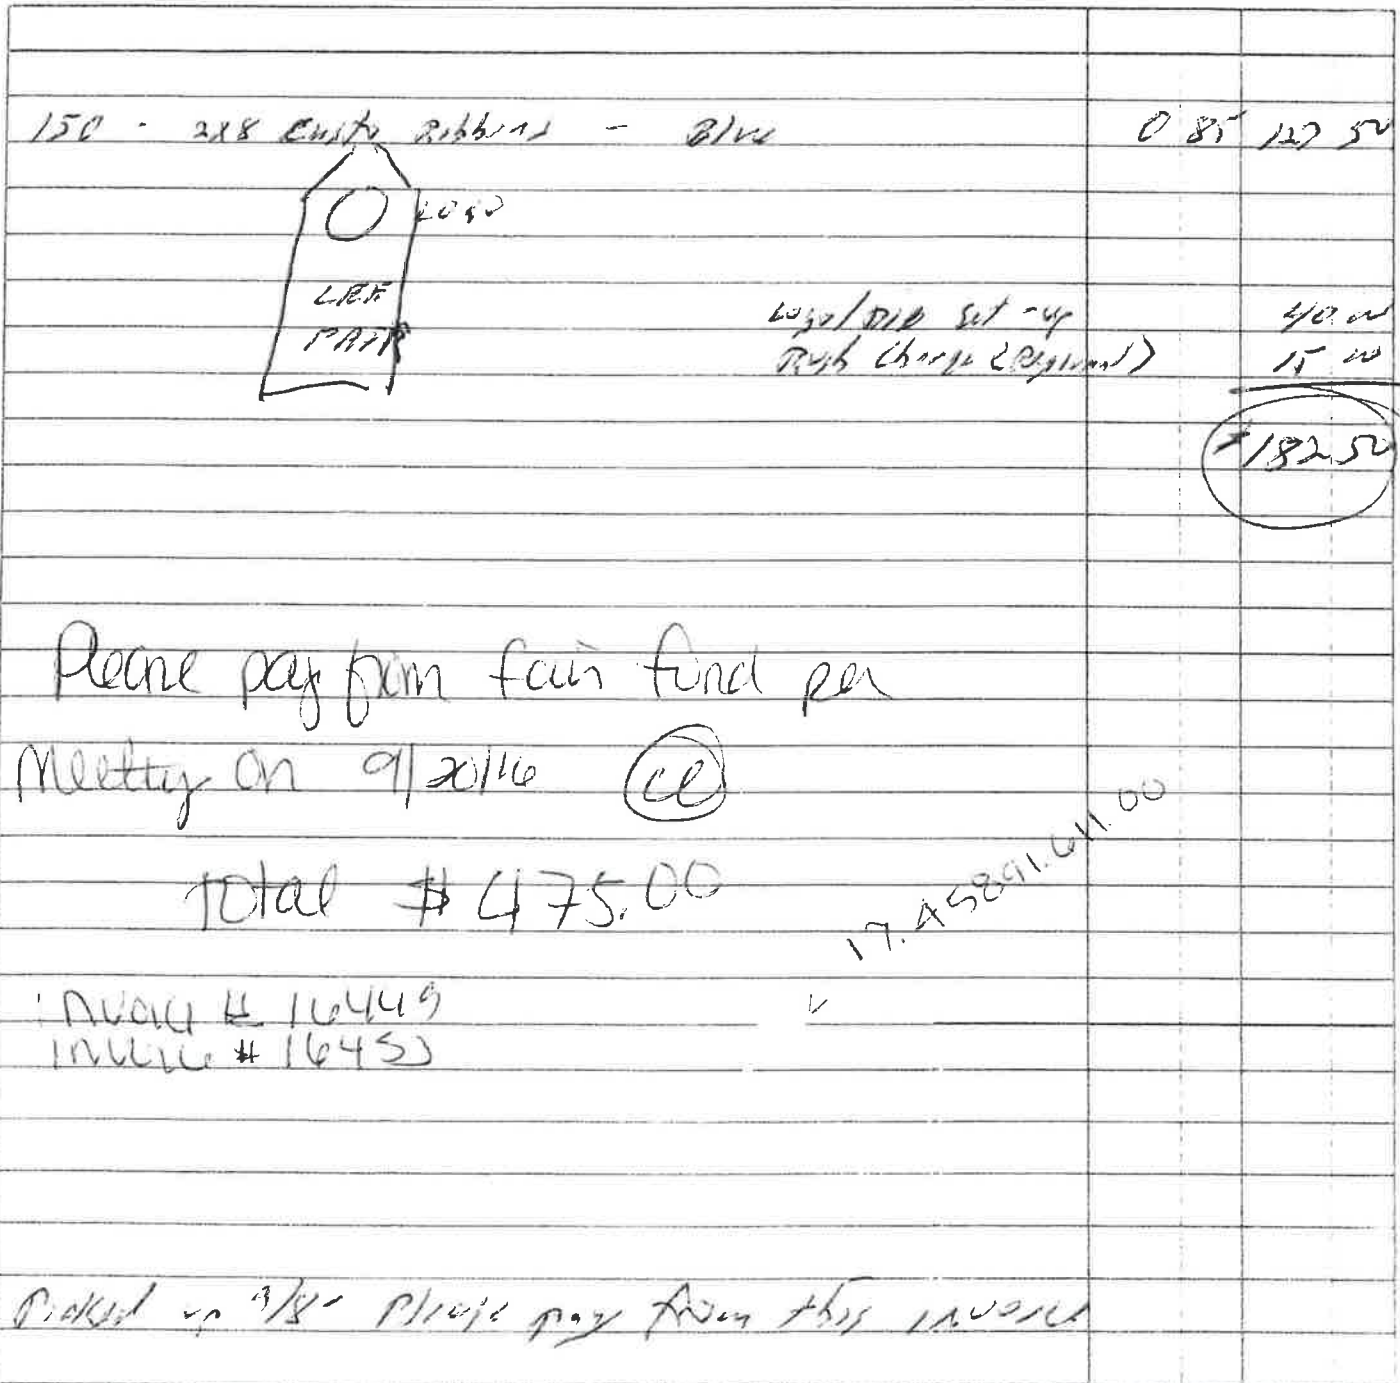 150 - 2x8 Custo Ribbons - Blue 0 85 127 50
LOGO
LRF
Logo/DIE Set-up 40.00
PATR
Rush Charge 15 00
$182.50
Please pay from fair fund per
Meeting on 9/20/16 ce
total $475.00
17.45891.611.00
invoice # 16449
invoice #
Picked up 9/8- Please pay from this invoice